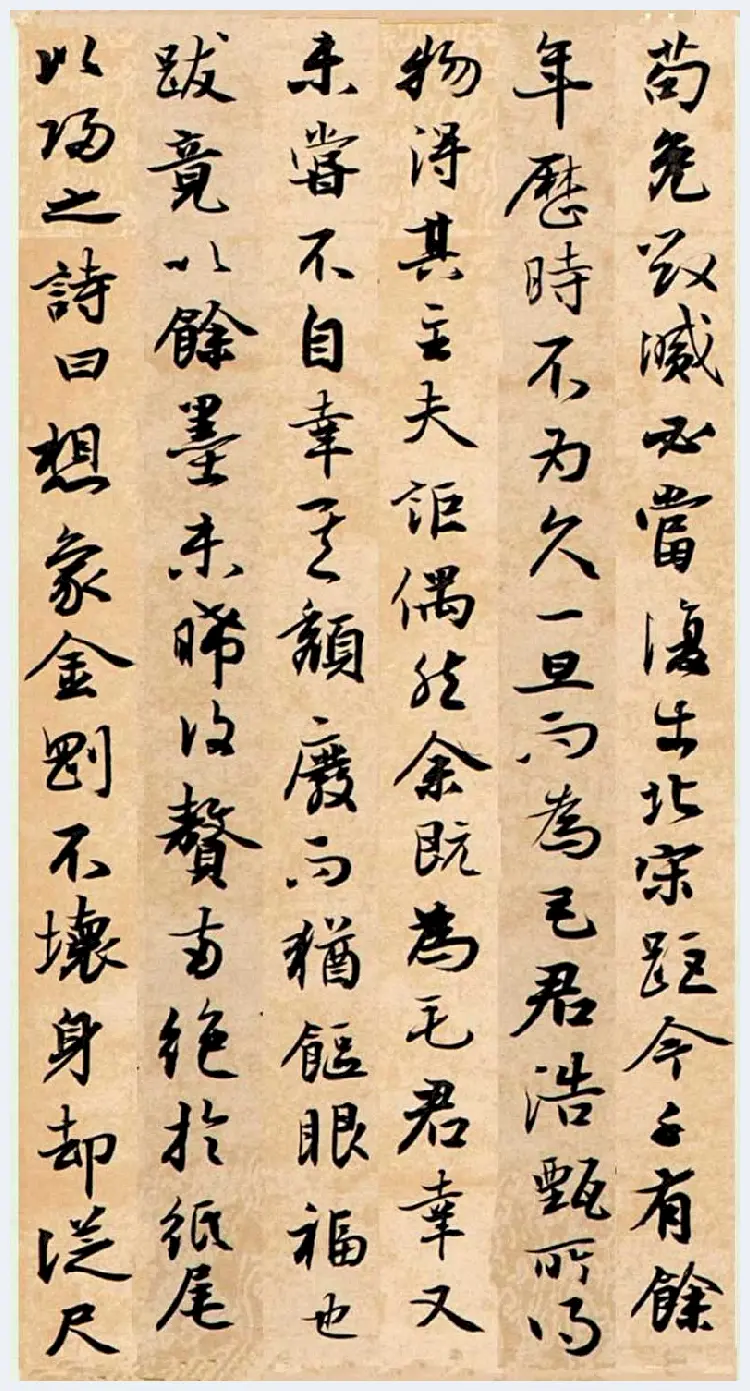 苟免毀滅必當復出北宋距今千有餘
年歷時不为久一旦而為毛君浩甄所得
物得其主夫詎偶然余既為毛君幸又
未嘗不自幸其頹廢而猶饇眼福也
跋竟以餘墨未晞復贅兩絕於紙尾
以歸之詩曰想象金剛不壞身却從尺